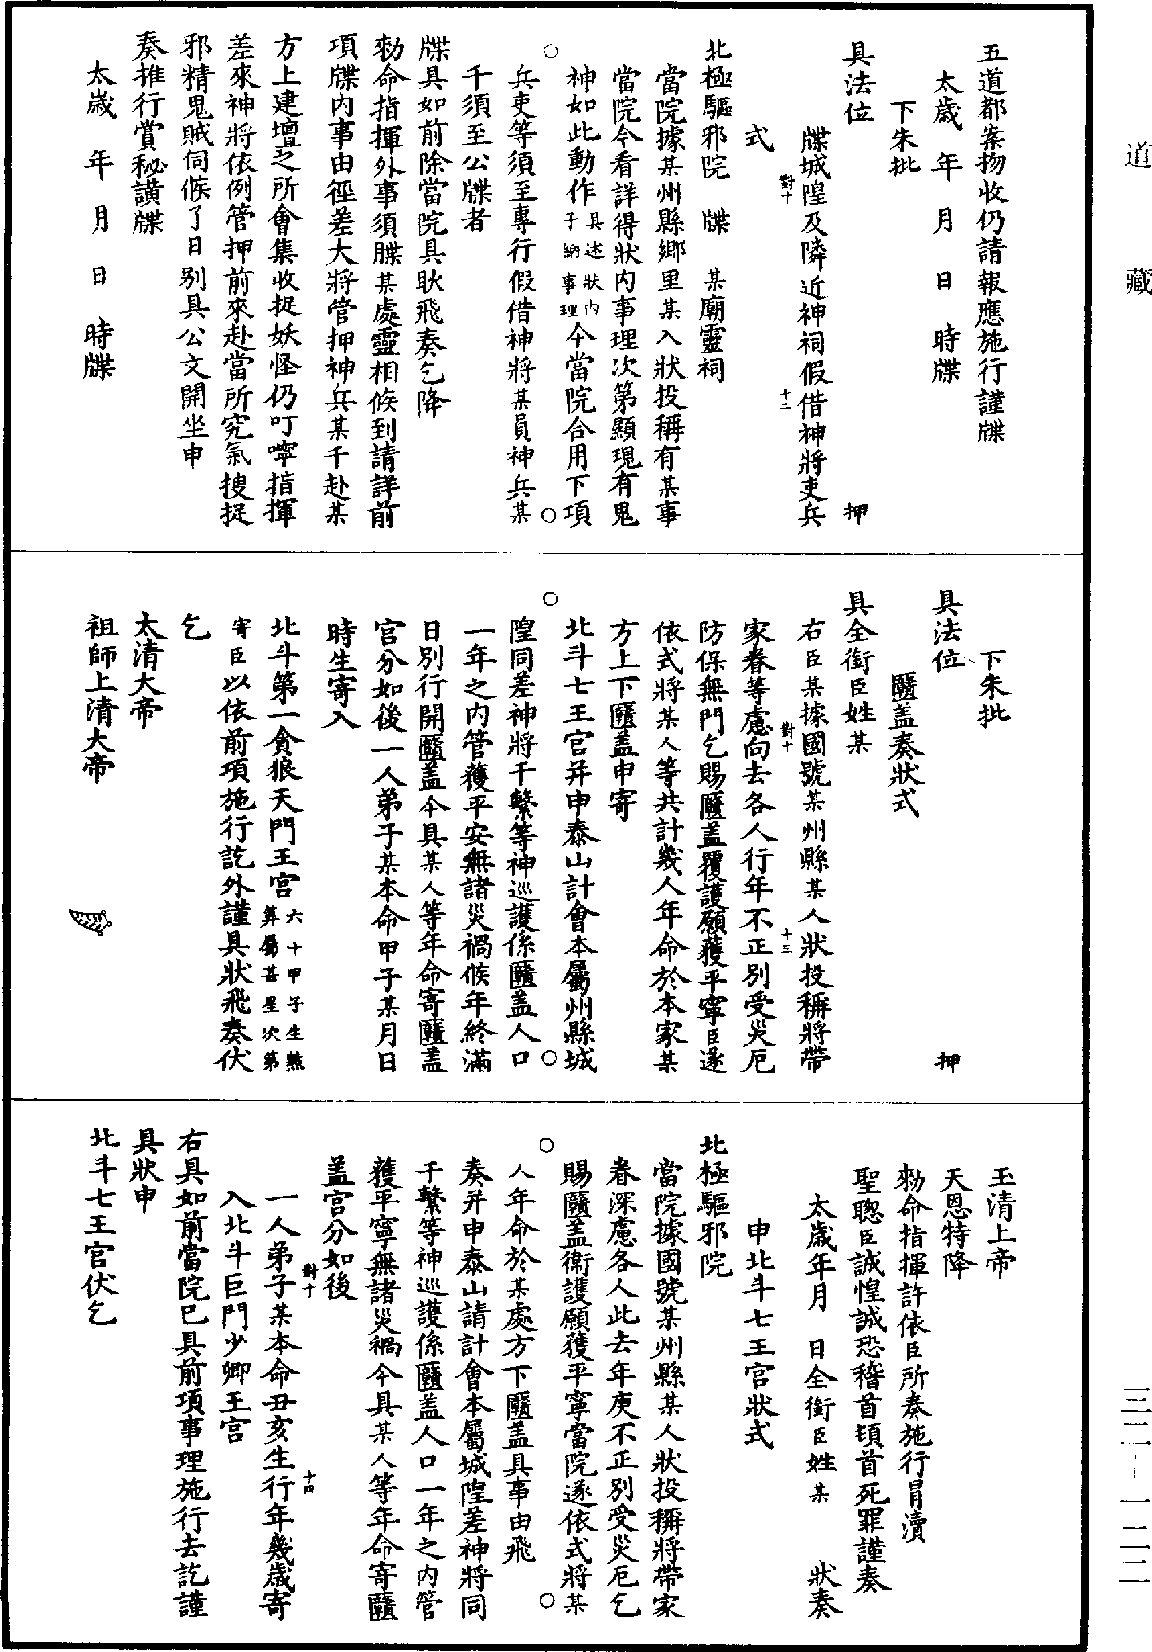 五道都案抅收仍請報應施行謹牒
太歲　年　月　日　時牒
下朱批
具法位　押
牒城隍及隣近神祠假借神將吏兵
式
北極驅邪院　牒　某廟靈祠
當院據某州縣鄉里某入狀投稱有某事
當院今看詳得狀內事理次第顯現有鬼
神如此動作具述狀內子納事理今當院合用下項
兵吏等須至專行假借神將某員神兵某
千須至公牒者
牒具如前除當院具耿飛奏乞降
勑命指揮外事須牒某處靈相候到請詳前
項牒內事由徑差大將管押神兵某千赴某
方上建壇之所會集收捉妖怪仍叮嚀指揮
差來神將依例管押前來赴當所究氣搜捉
邪精鬼賊伺候了日別具公文開坐申
奏推行賞秘謹牒
太歲　年　月　日　時牒
下朱批
具法位　押
匶盖奏狀式
具全銜臣姓某
右臣某據國號某州縣某人狀投稱將帶
家眷等慮向去各人行年不正別受災厄
防保無門乞賜匶盖覆護願獲平寧臣遂
依式將某人等共計幾人年命於本家某
方上下匶盖申寄
北斗七王官并申泰山計會本屬州縣城
隍同差神將千繫等神巡護係匶盖人口
一年之內管獲平安無諸災禍候年終滿
日別行開匶盖今具某人等年命寄匶盖
宮分如後一人弟子某本命甲子某月日
時生寄入
北斗第一貪狼天門王宮六十甲子生煞筭屬甚星次第
寄臣以依前項施行訖外謹具狀飛奏伏
乞
太清大帝
祖師上清大帝
玉清上帝
天恩特降
勑命指揮許依臣所奏施行冐瀆
聖聰臣誠惶誠恐稽首頓首死罪謹奏
太歲年月　日全銜臣姓某　狀奏
申北斗七王宮狀式
北極驅邪院
當院據國號某州縣某人狀投稱將帶家
眷深慮各人此去年庚不正別受災厄乞
賜匶盖衛護願獲平寧當院遂依式將某
人年命於某處方下匶盖具事由飛
奏并申泰山請計會本屬城隍差神將同
千繫等神巡護係匶盖人口一年之內管
獲平寧無諸災禍今具某人等年命寄匶
盖宮分如後
一人弟子某本命丑亥生行年幾歲寄
入北斗巨門少卿王宮
右具如前當院已具前項事理施行去訖謹
具狀申
北斗七王宮伏乞
對十
十二
對十
十三
對十
十四
道藏
三二―一二二